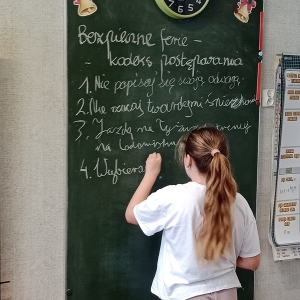 Bezpieczne ferie -
- kodeks postępowania
1. Nie popisuj się swoją odwagą.
2. Nie rzucaj twardymi śnieżkami
3. Jazdę na łyżwach
na lodowisku
4. Wybiera